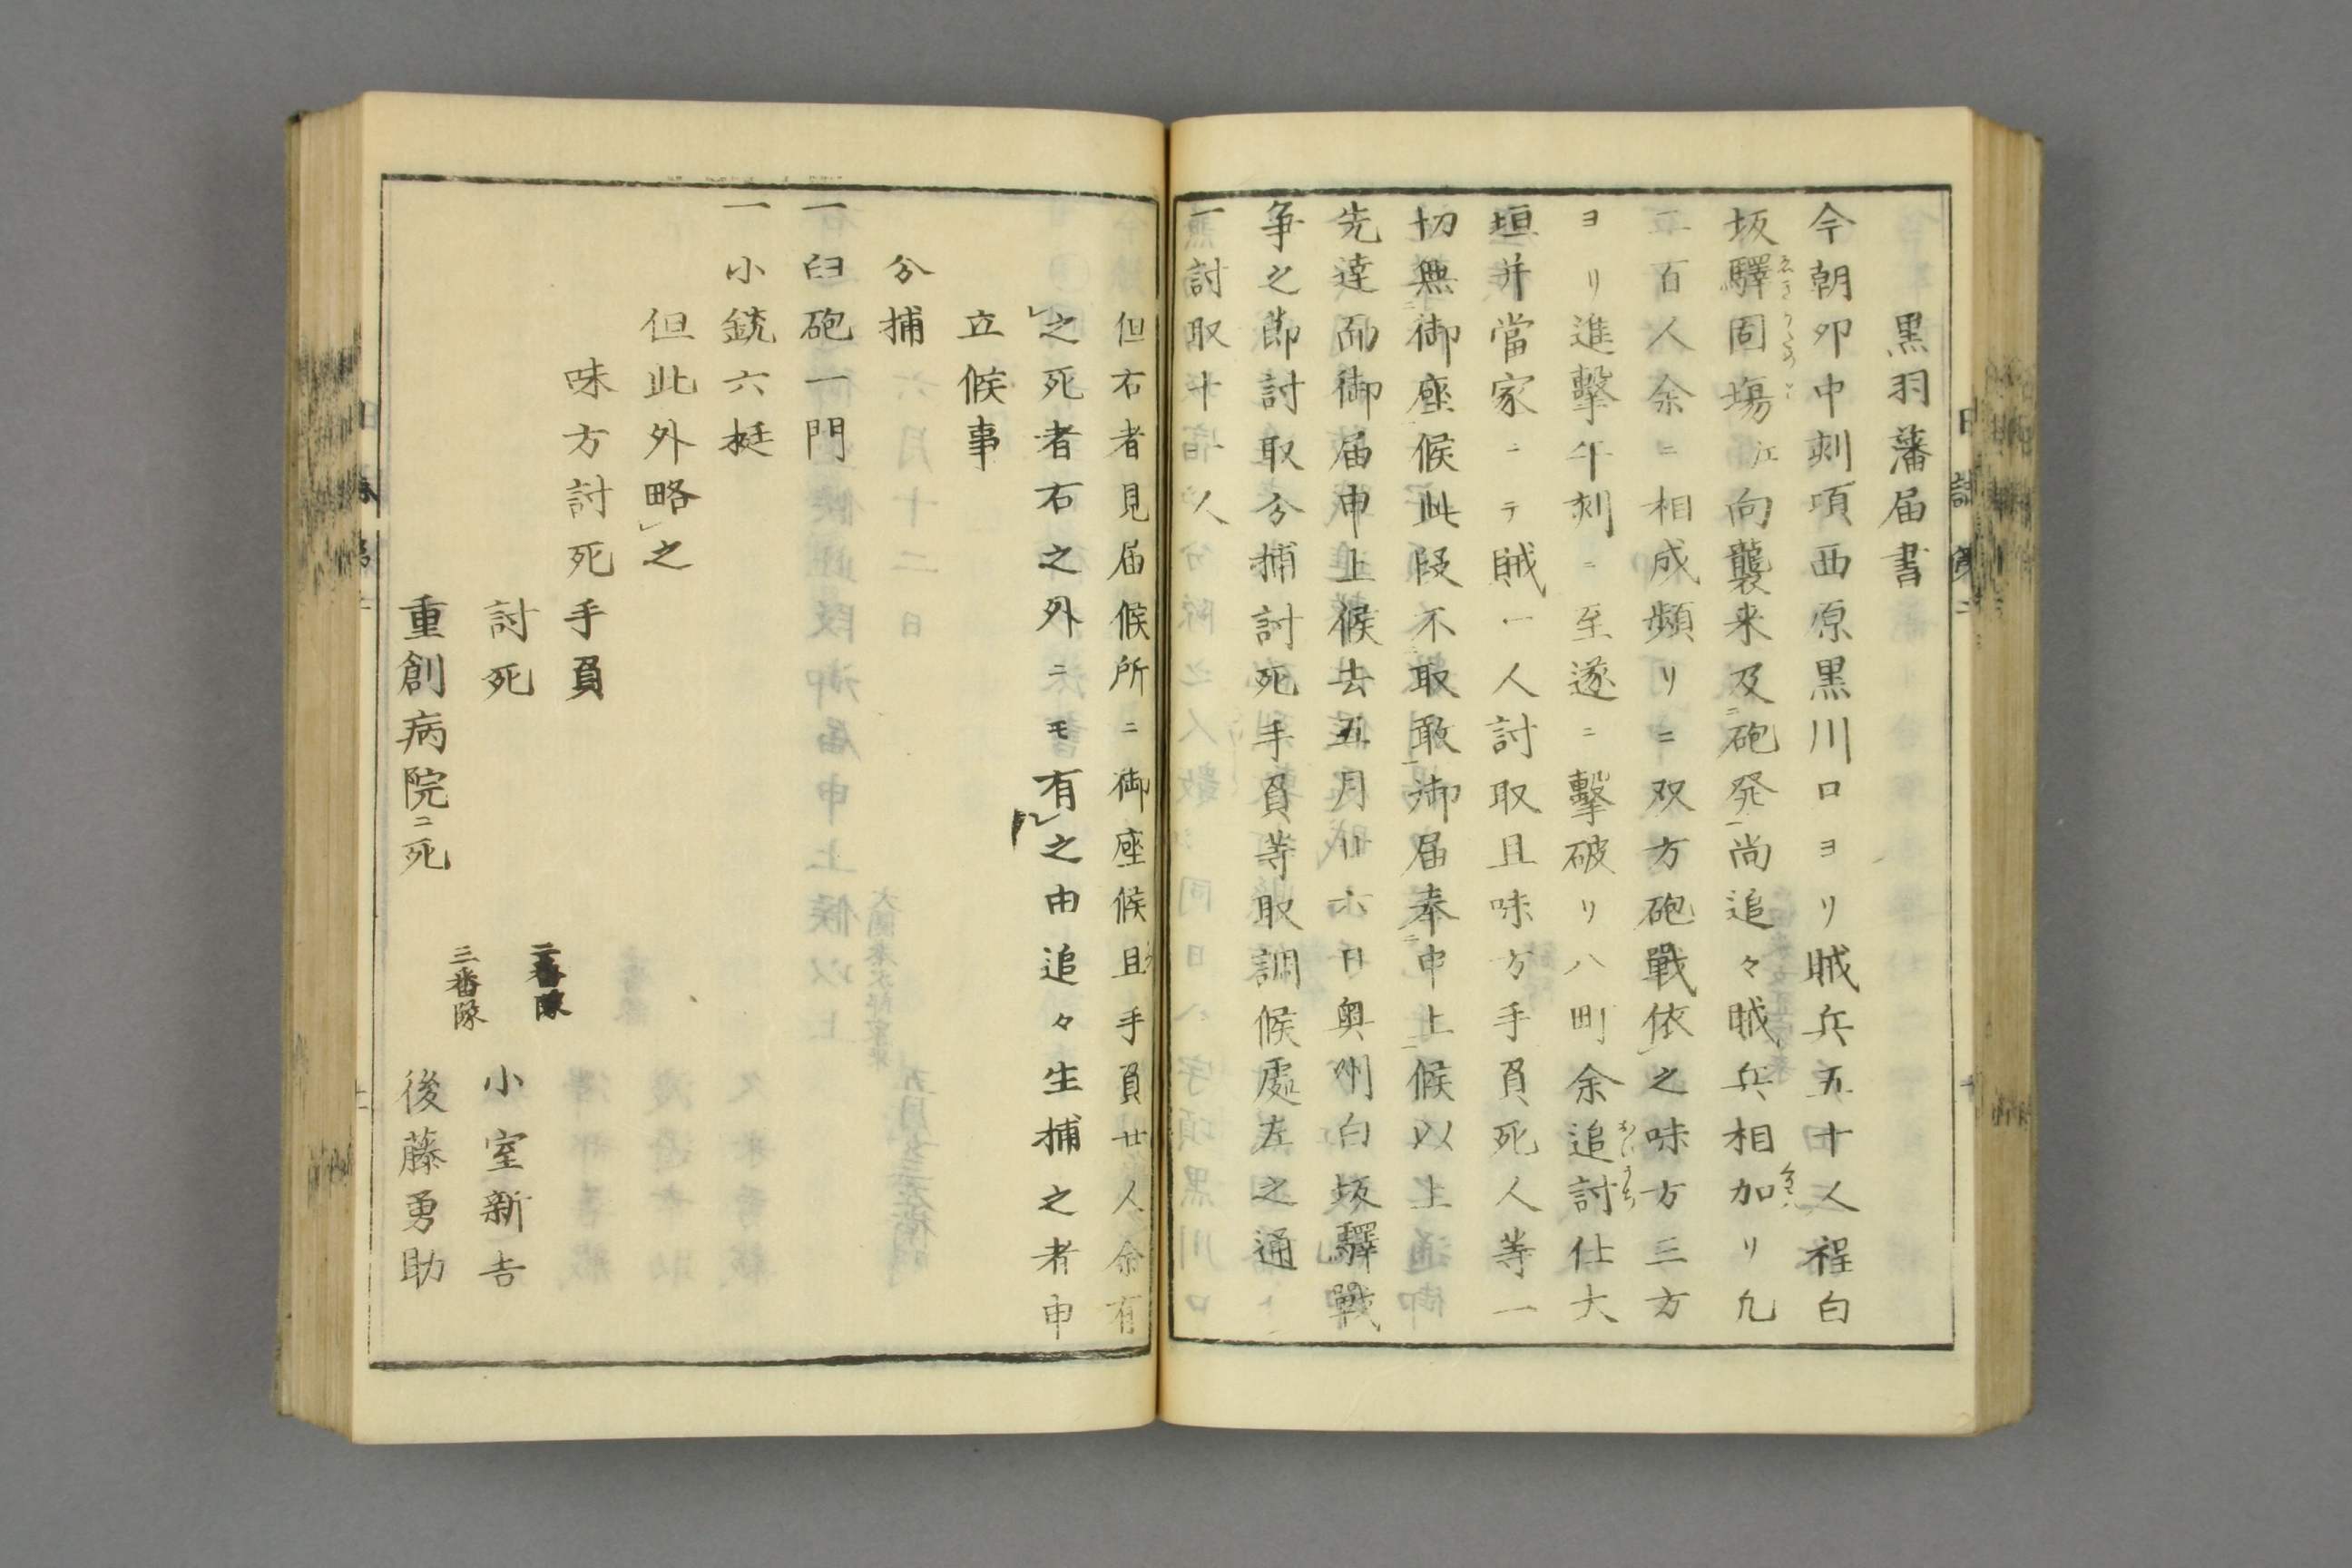 黒羽藩届書
今朝卯中刻項西原黒川口ヨリ賊兵五十人程白
坂驛固場江向襲来及砲発尚追々賊兵相加リ九
二百人余ニ相成頻リニ双方砲戰依之味方三方
ヨリ進擊午刻ニ至遂ニ擊破リ八町余追討仕大
垣并當家ニテ賊一人討取且味方手負死人等一
切無御座候此段不取敢御届奉申上候以上
先達而御届申上候去五月廿六日奥州白坂驛戰
争之節討取分捕討死手負等取調候處左之通
一討取十人
但右者見届候所ニ御座候且手負廿人余有
之死者右之外ニモ有之由追々生捕之者申
立候事
分捕
一臼砲一門
一小銃六挺
但此外略之
味方討死手負
討死
二番隊
小室新吉
重創病院ニ死
三番隊
後藤勇助